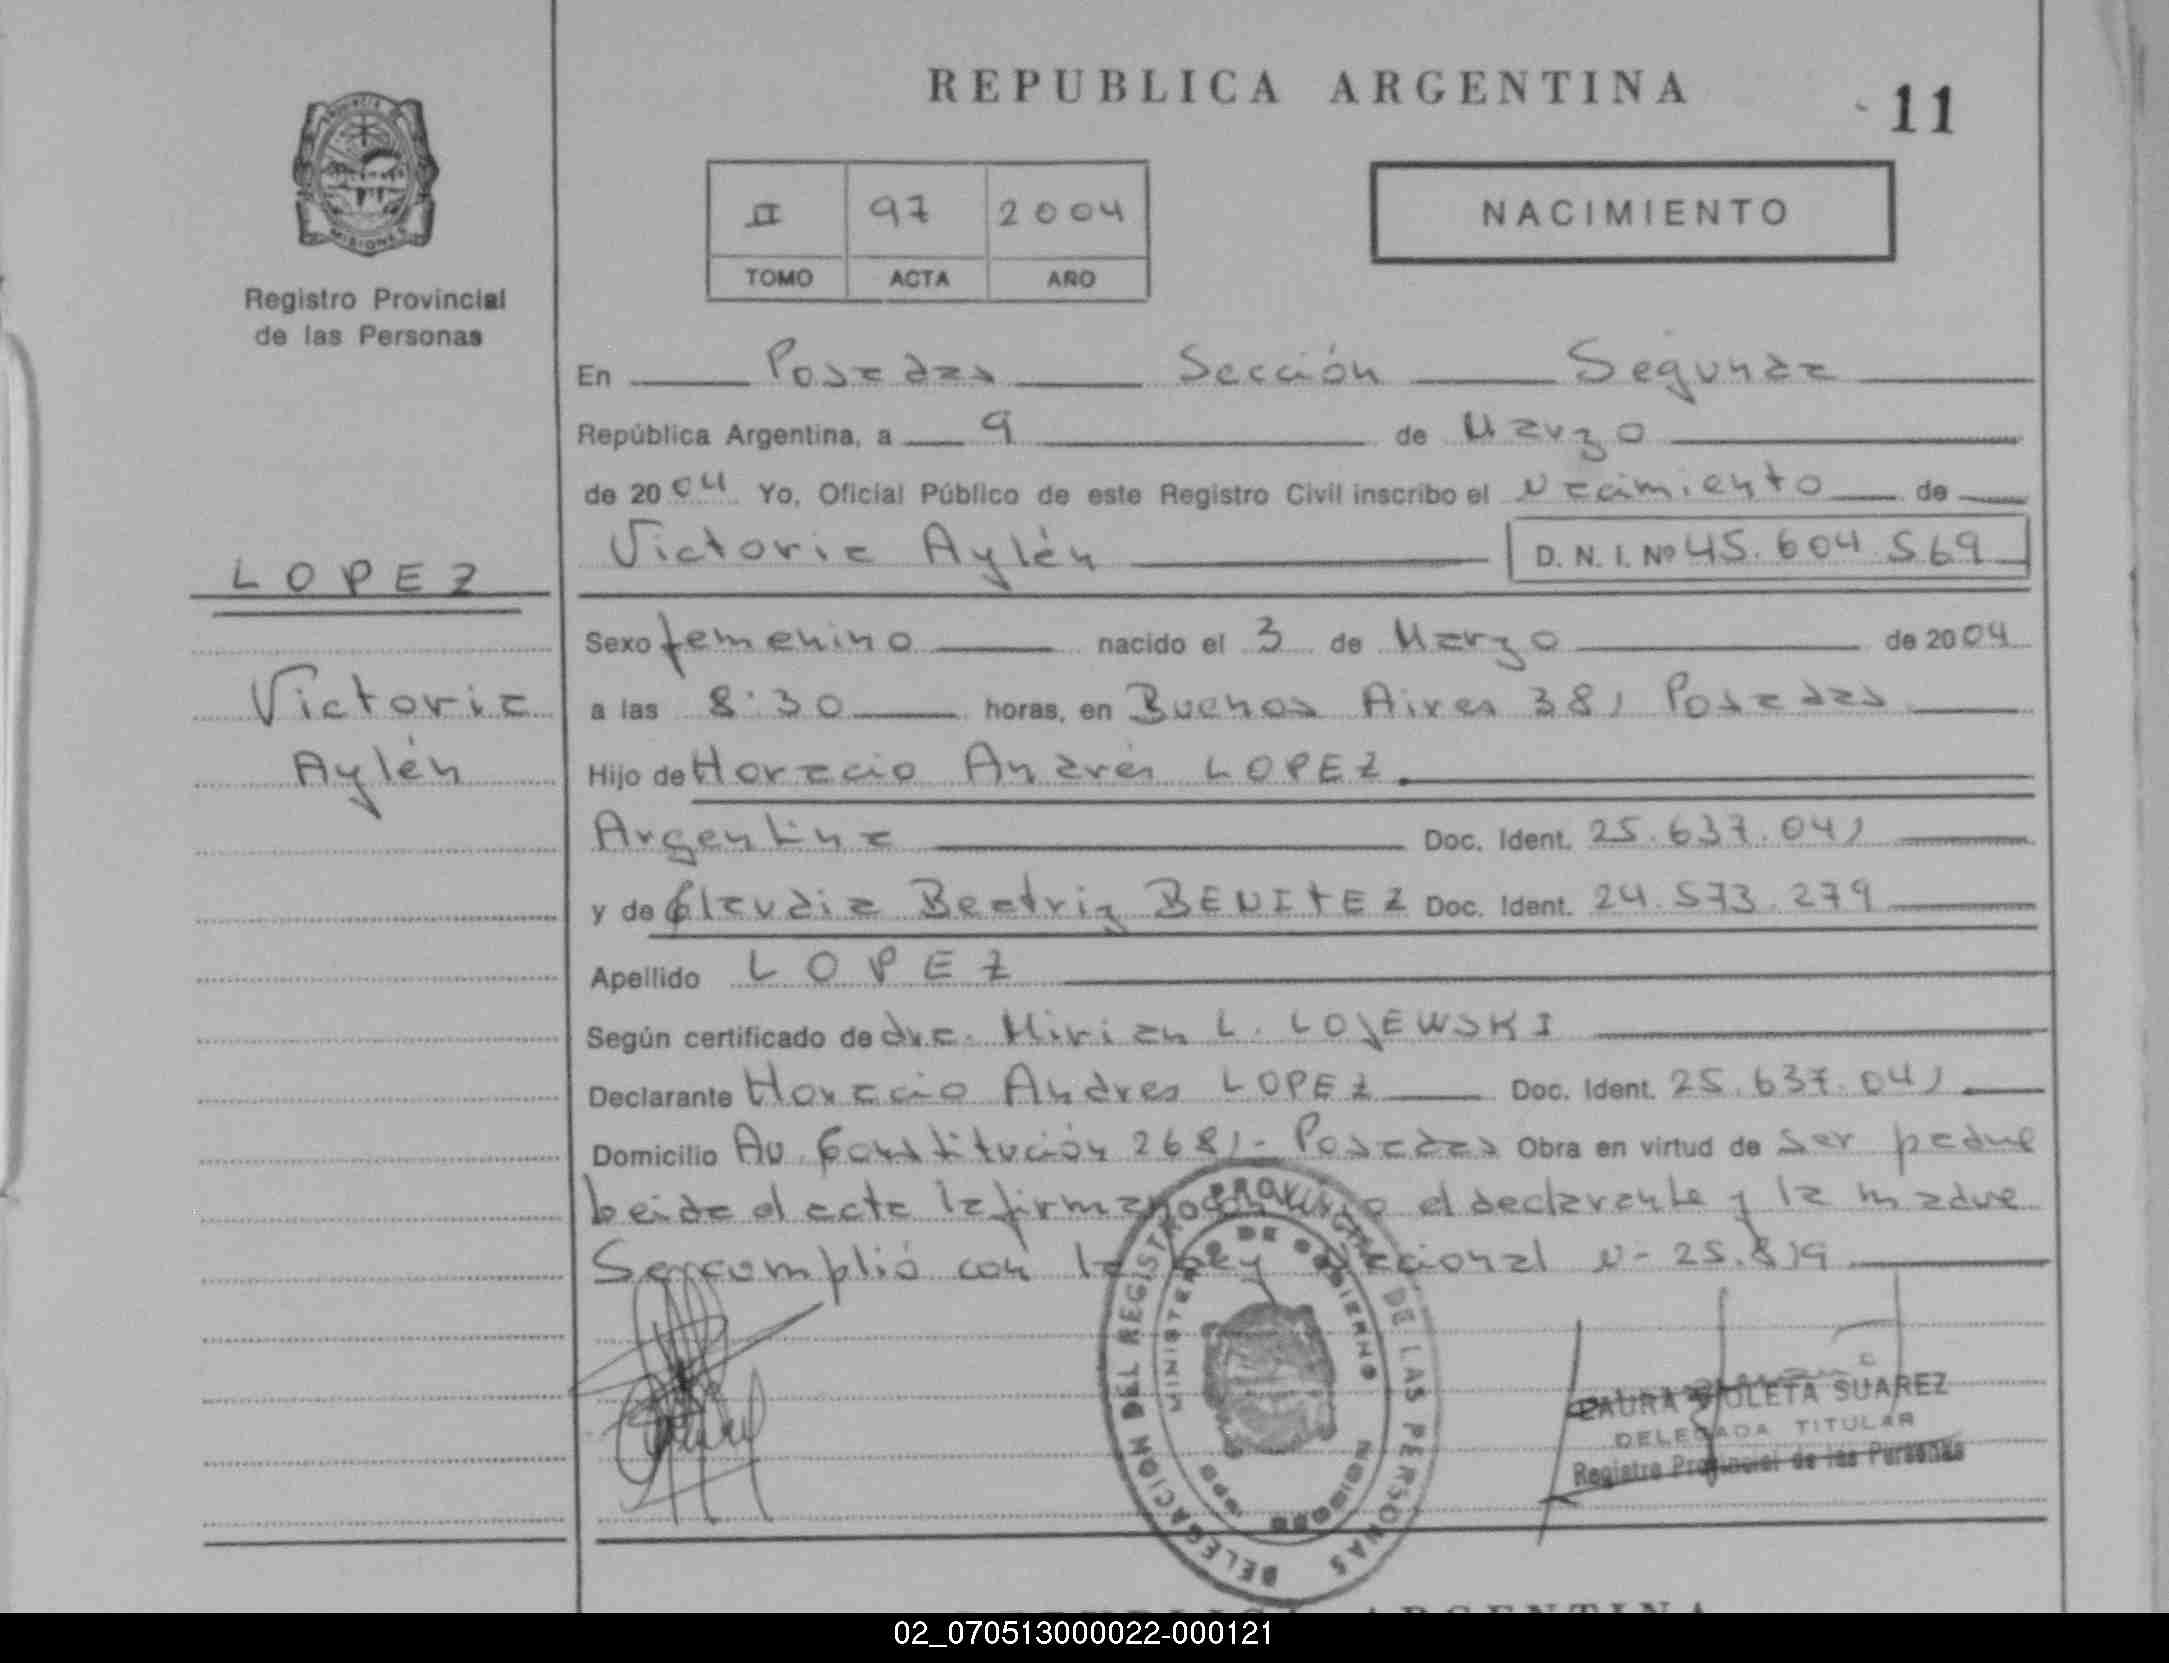 REPUBLICA ARGENTINA
11
II 97 2004
TOMO ACTA AÑO
NACIMIENTO
PROVINCIA
MISIONES
Registro Provincial
de las Personas
LOPEZ
Victoria
Aylén
En Posadas Sección Segunda
República Argentina, a 9 de Marzo
de 2004 Yo, Oficial Público de este Registro Civil inscribo el Nacimiento de
Victoria Aylén D. N. I. Nº 45.604.569
Sexo femenino nacido el 3 de Marzo de 2004
a las 8:30 horas, en Buenos Aires 381 Posadas
Hijo de Horacio Andrés LOPEZ
Argentina Doc. Ident. 25.637.041
y de Claudia Beatriz BENITEZ Doc. Ident. 24.573.279
Apellido LOPEZ
Según certificado de dra. Mirian L. LOJEWSKI
Declarante Horacio Andres LOPEZ Doc. Ident. 25.637.041
Domicilio Av. Constitución 2681- Posadas Obra en virtud de ser padre
Leida el acta la firman el declarante y la madre
Se cumplió con la Ley Nacional N- 25.819
DELEGACION DEL REGISTRO PROVINCIAL DE LAS PERSONAS
MINISTERIO DE GOBIERNO
LAURA VIOLETA SUAREZ
DELEGADA TITULAR
Registro Provincial de las Personas
REPUBLICA ARGENTINA
02_070513000022-000121